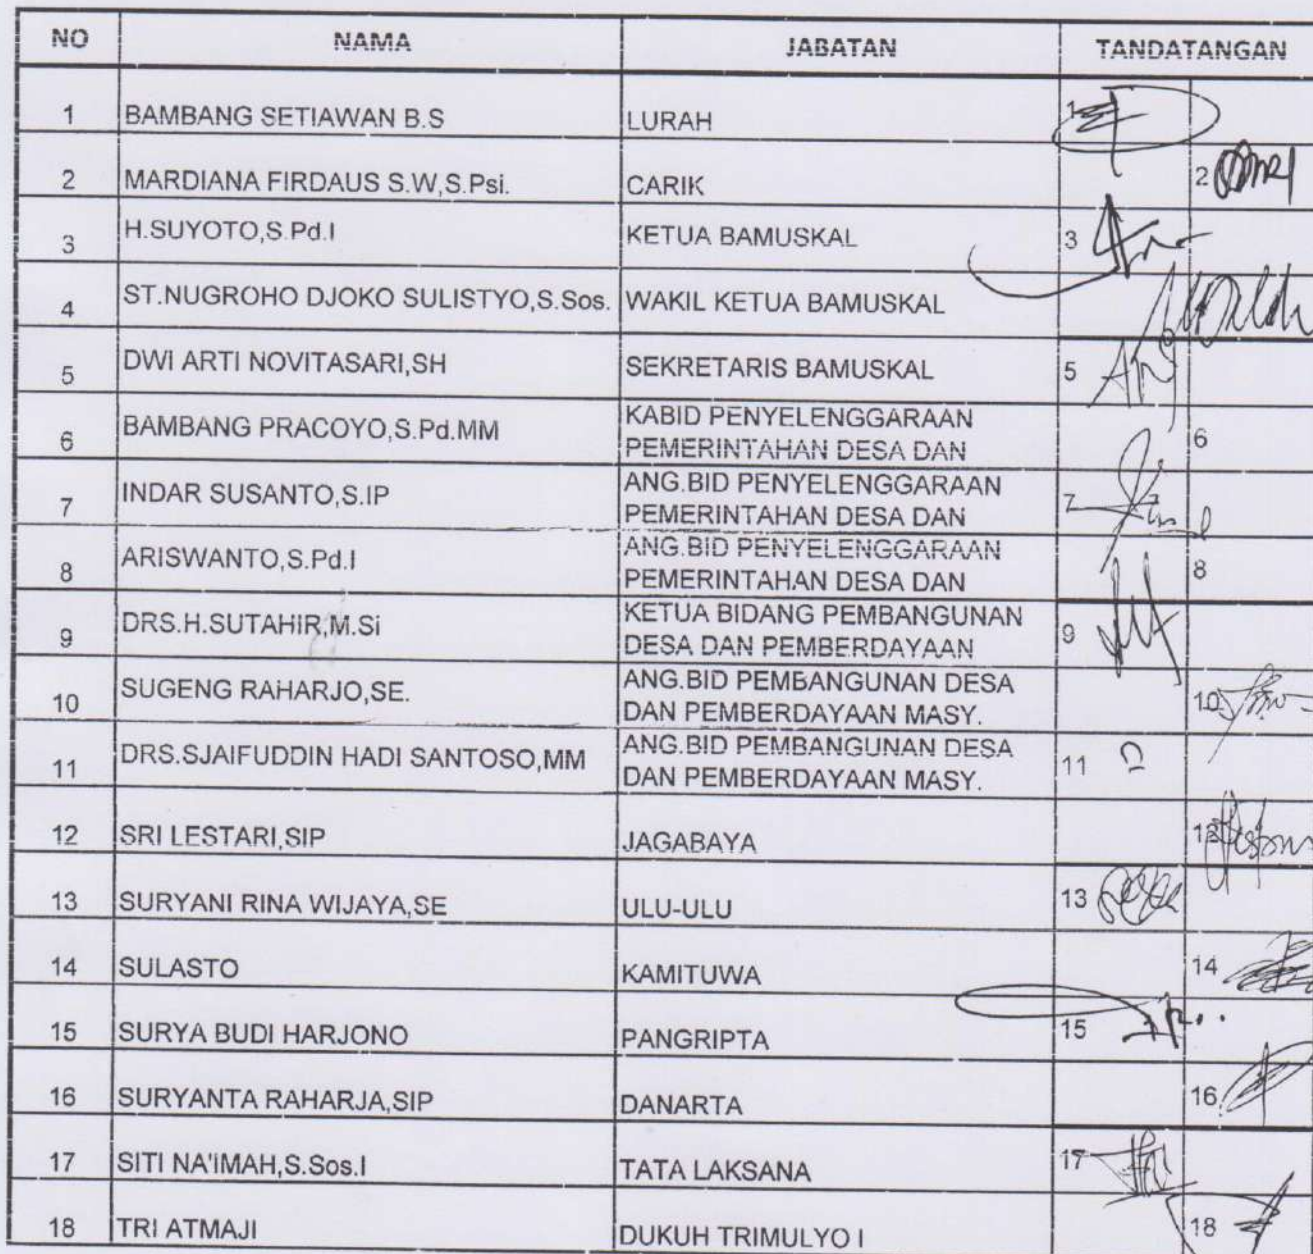 NO NAMA JABATAN TANDATANGAN
1 BAMBANG SETIAWAN B.S LURAH 1
2 MARDIANA FIRDAUS S.W,S.Psi. CARIK 2
3 H.SUYOTO,S.Pd.I KETUA BAMUSKAL 3
4 ST.NUGROHO DJOKO SULISTYO,S.Sos. WAKIL KETUA BAMUSKAL
5 DWI ARTI NOVITASARI,SH SEKRETARIS BAMUSKAL 5
6 BAMBANG PRACOYO,S.Pd.MM KABID PENYELENGGARAAN 6
PEMERINTAHAN DESA DAN
7 INDAR SUSANTO,S.IP ANG.BID PENYELENGGARAAN 7
PEMERINTAHAN DESA DAN
8 ARISWANTO,S.Pd.I ANG.BID PENYELENGGARAAN 8
PEMERINTAHAN DESA DAN
9 DRS.H.SUTAHIR,M.Si KETUA BIDANG PEMBANGUNAN 9
DESA DAN PEMBERDAYAAN
10 SUGENG RAHARJO,SE. ANG.BID PEMBANGUNAN DESA 10
DAN PEMBERDAYAAN MASY.
11 DRS.SJAIFUDDIN HADI SANTOSO,MM ANG.BID PEMBANGUNAN DESA 11
DAN PEMBERDAYAAN MASY.
12 SRI LESTARI,SIP JAGABAYA 12
13 SURYANI RINA WIJAYA,SE ULU-ULU 13
14 SULASTO KAMITUWA 14
15 SURYA BUDI HARJONO PANGRIPTA 15
16 SURYANTA RAHARJA,SIP DANARTA 16
17 SITI NA'IMAH,S.Sos.I TATA LAKSANA 17
18 TRI ATMAJI DUKUH TRIMULYO I 18